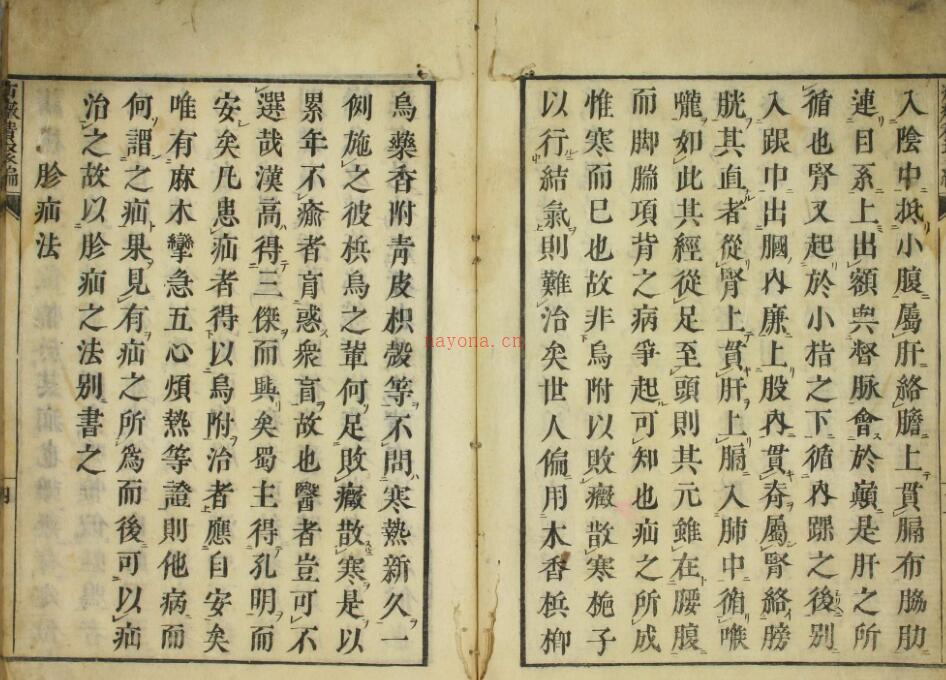 入陰中抵小腹屬肝絡膽上貫膈布脇肋
連目系上出額與督脈會於巔是肝之所
循也腎又起於小指之下循內踝之後別
入跟中出膕內廉上股內貫脊屬腎絡膀
胱其直者從腎上貫肝上膈入肺中循喉
嚨如此其經從足至頭則其元雖在腰腹
而脚腨項背之病爭起可知也疝之所成
惟寒而已也故非烏附以敗癥散寒梔子
以行結氣則難治矣世人偏用木香梹榔
烏藥香附青皮枳殼等不問寒熱新久一
例施之彼梹烏之輩何足敗癥散寒是以
累年不瘉者肓惑衆盲故也醫者豈可不
選哉漢高得三傑而興矣蜀主得孔明而
安矣凡患疝者得以烏附治者應自安矣
唯有麻木攣急五心煩熱等證則他病而
何謂之疝果見有疝之所爲而後可以疝
治之故以胗疝之法別書之
胗疝法
四
nayona.cn